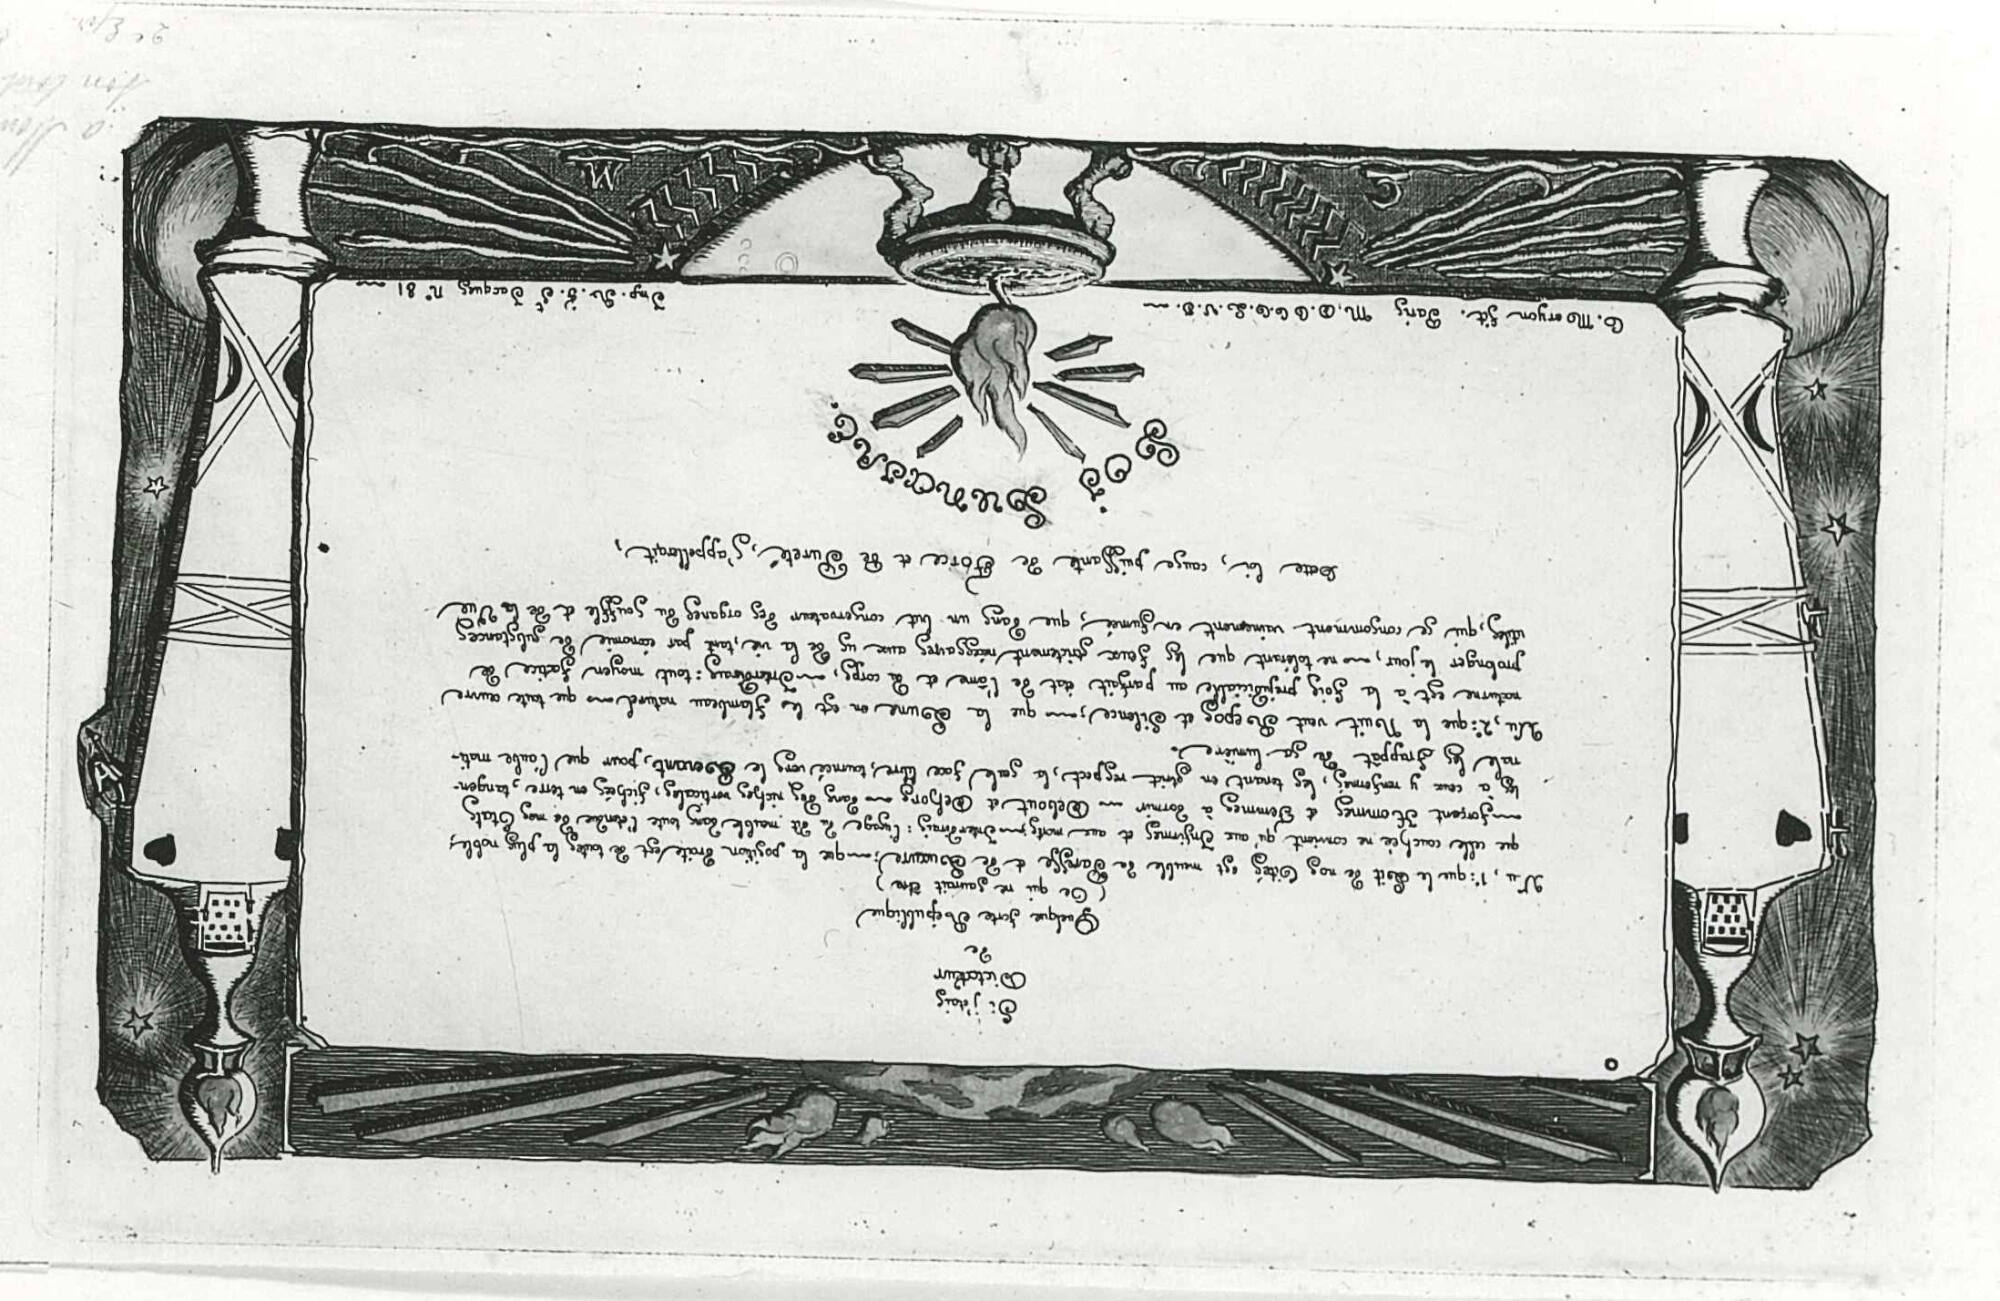 Si j'étais
Dictateur
de
Quelque forte République
(Ce qui ne saurait être)
Vu, 1°: que le Lit de nos Cités est meuble de Paresse et de Luxure; que la position droite est de toutes la plus noble;
que celle couchée ne convient qu'aux Infirmes et aux morts; Interdirais: l'usage du dit meuble dans toute l'étendue de mes Etats
forçant Hommes et Femmes à dormir Debout et Dehors dans des niches verticales, fichées en terre, tangen-
tes à ceux y renfermés, les tenant en strict respect, la seule face libre, tournée vers le Levant, pour que l'aube mati-
nale les frappât de sa lumière.
Vu, 2°: que la Nuit veut Repos et Silence; que la Lune en est le flambeau naturel que toute œuvre
nocturne est à la fois préjudiciable au parfait état de l'âme et du corps, Interdirais: tout moyen factice de
prolonger le jour, ne tolérant que les feux strictement nécessaires aux us de la vie, tant par économie de substances
utiles, qui se consomment vainement en fumée; que dans un but conservateur des organes du souffle et de la Vue
Cette loi, cause puissante de Force et de Pureté, s'appellerait,
LOI. LUNAIRE.
C. Meryon fit. Paris M.D.C.C.C.L.V.I.
Imp. R. N. St Jacques N° 81
C M